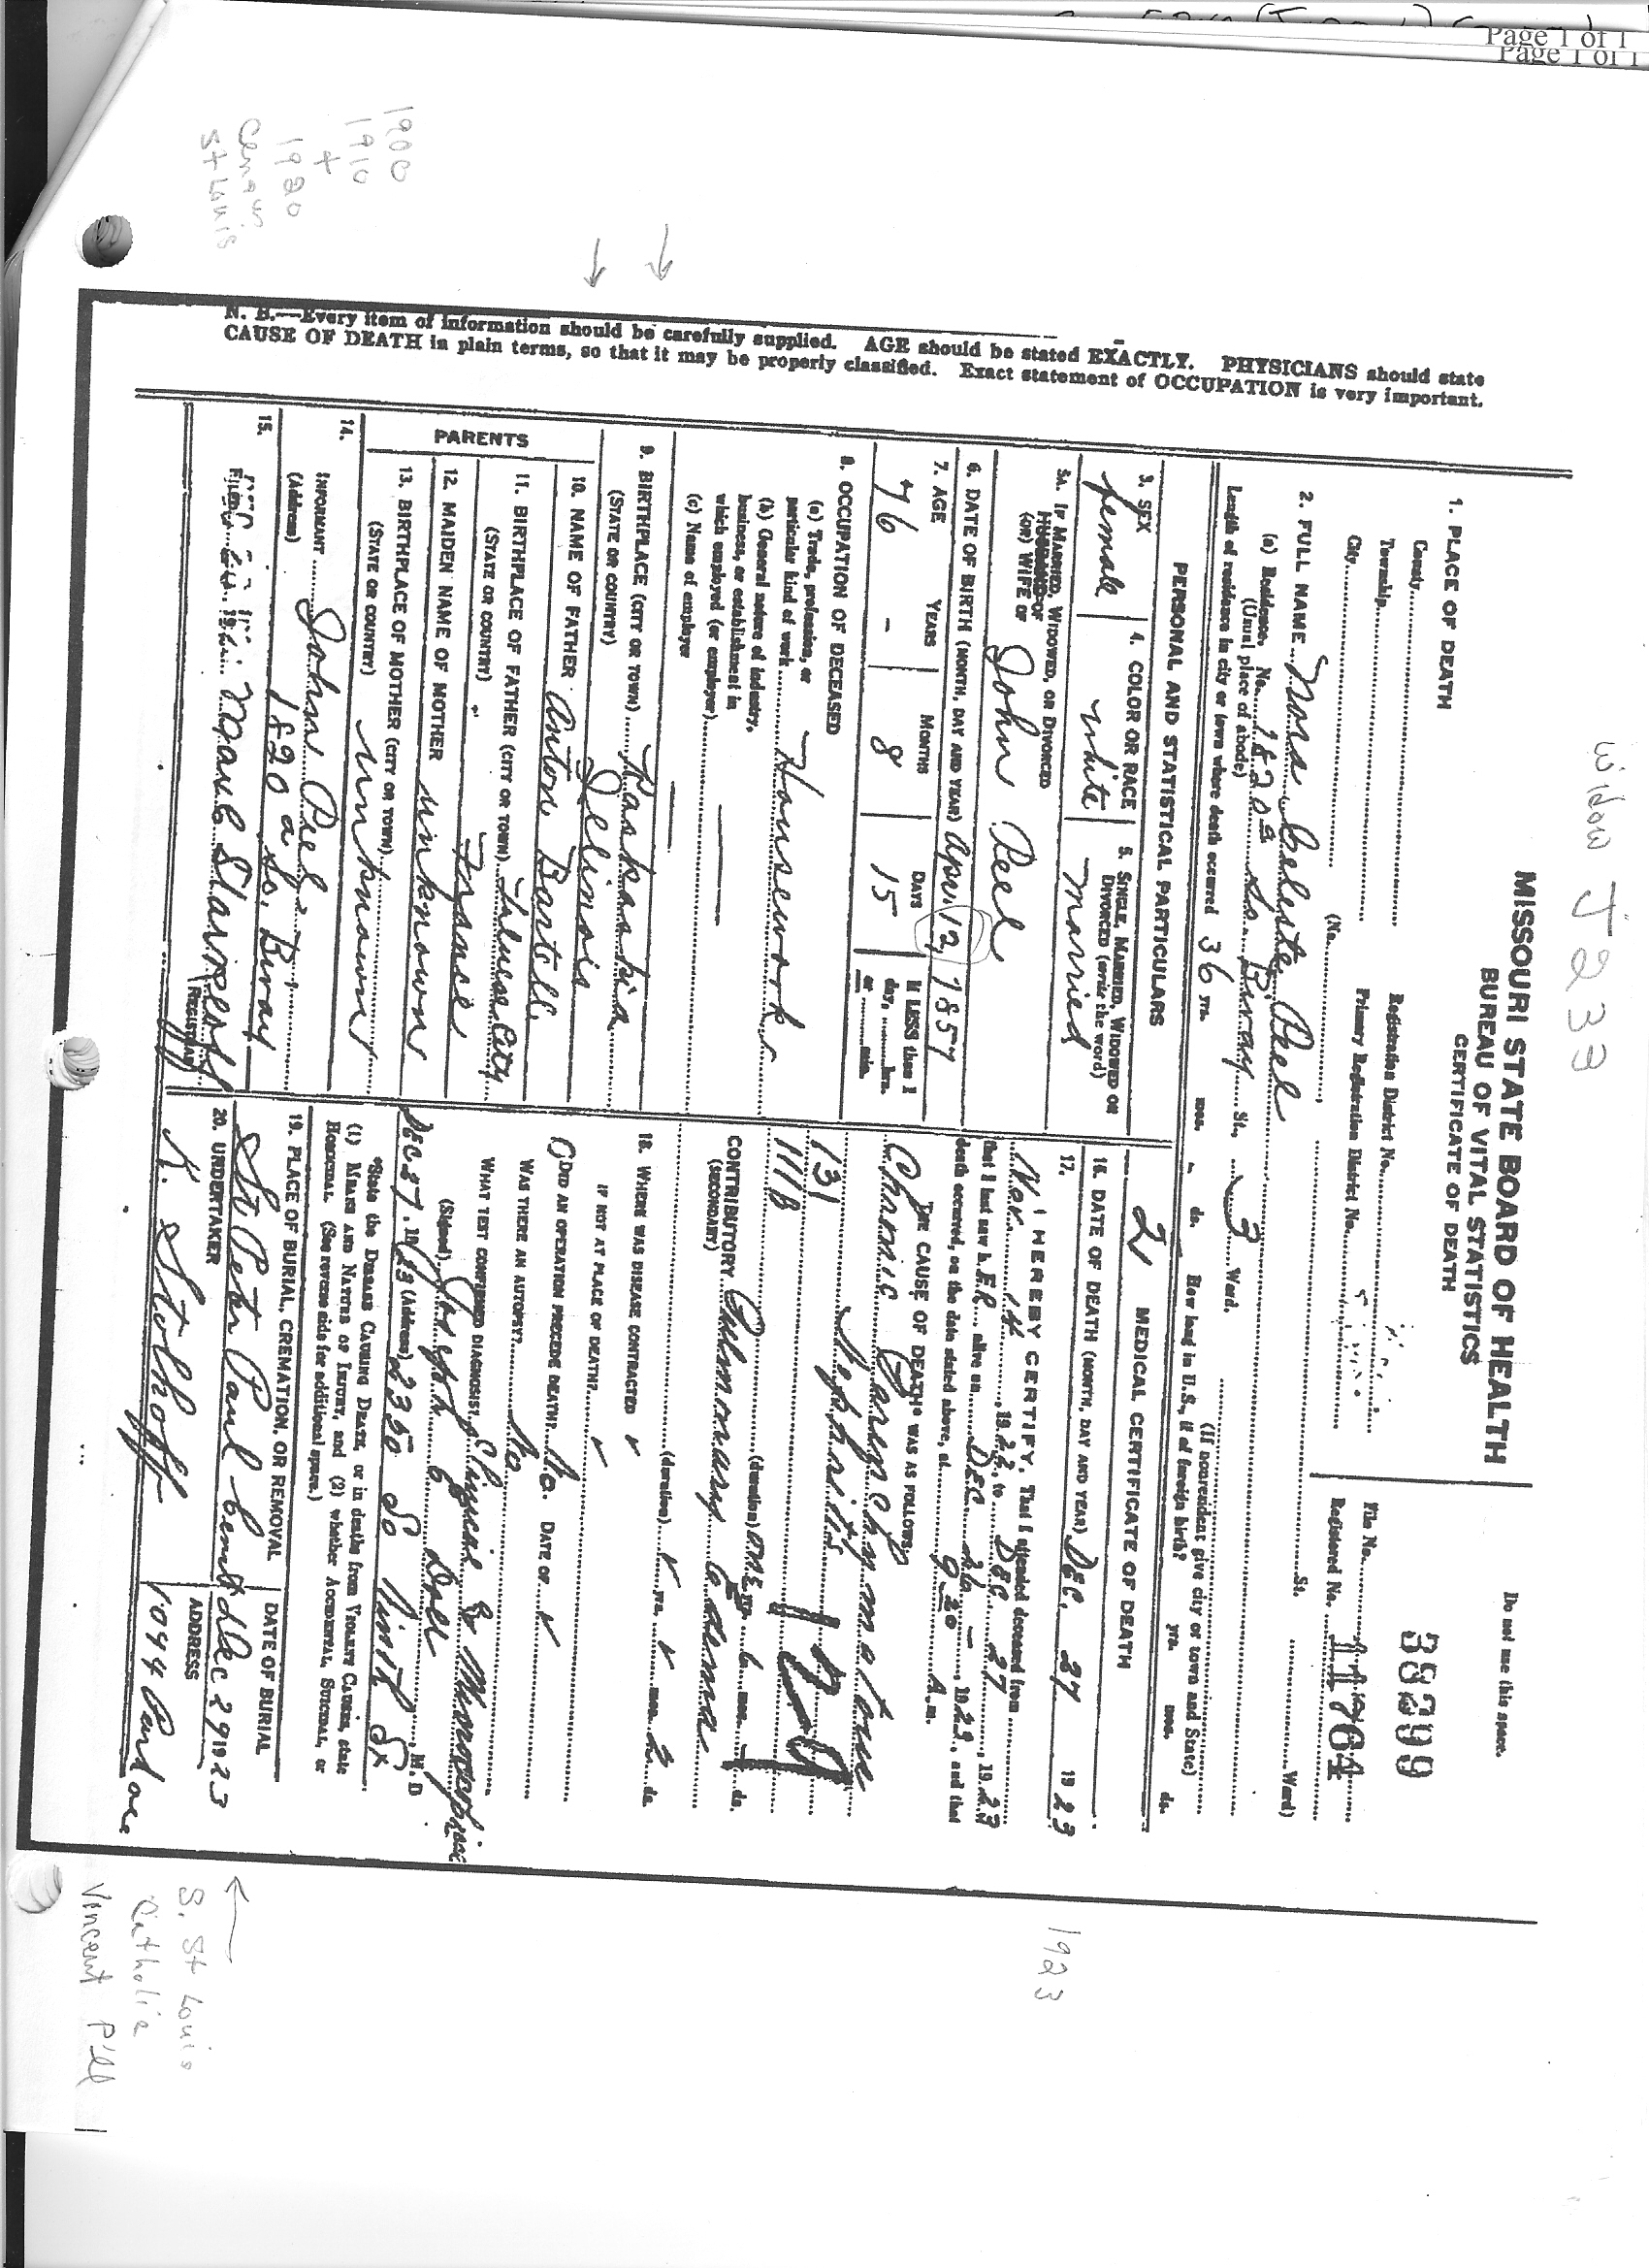 Page 1 of 1
Page 1 of 1
widow J233
MISSOURI STATE BOARD OF HEALTH
BUREAU OF VITAL STATISTICS
CERTIFICATE OF DEATH
Do not use this space.
38299
1. PLACE OF DEATH
County
Registration District No.
File No.
Township
Primary Registration District No.
Registered No. 11764
City (No. St. Ward)
2. FULL NAME Nora Celeste Peel
(a) Residence. No. 1820a So. Bway St., 3 Ward.
(Usual place of abode)
(If nonresident give city or town and State)
Length of residence in city or town where death occurred 36 yrs. mos. - ds. How long in U.S., if of foreign birth? yrs. mos. ds.
PERSONAL AND STATISTICAL PARTICULARS
3. SEX
female
4. COLOR OR RACE
white
5. SINGLE, MARRIED, WIDOWED OR
DIVORCED (write the word)
married
5A. IF MARRIED, WIDOWED, OR DIVORCED
HUSBAND OF
(OR) WIFE OF John Peel
6. DATE OF BIRTH (MONTH, DAY AND YEAR) Apr. 12, 1857
7. AGE YEARS MONTHS DAYS If LESS than 1
day, hrs.
or min.
76 - 8 15
8. OCCUPATION OF DECEASED
(a) Trade, profession, or
particular kind of work Housework
(b) General nature of industry,
business, or establishment in
which employed (or employer)
(c) Name of employer
9. BIRTHPLACE (CITY OR TOWN) Kaskaskia
(STATE OR COUNTRY) Illinois
PARENTS
10. NAME OF FATHER Anton Bartell
11. BIRTHPLACE OF FATHER (CITY OR TOWN) Tuluse City
(STATE OR COUNTRY) " France
12. MAIDEN NAME OF MOTHER unknown
13. BIRTHPLACE OF MOTHER (CITY OR TOWN)
(STATE OR COUNTRY) unknown
14.
INFORMANT John Peel
(Address) 1820a So. Bway
15.
FILED
REGISTRAR
2 MEDICAL CERTIFICATE OF DEATH
16. DATE OF DEATH (MONTH, DAY AND YEAR) DEC. 27 1923
17.
I HEREBY CERTIFY, That I attended deceased from
Nov. 14, 1922, to DEC 27, 1923
that I last saw h ER alive on DEC 26 -, 1923, and that
death occurred, on the date stated above, at 9-20 A.m.
THE CAUSE OF DEATH* WAS AS FOLLOWS:
Chronic Parenchymatous
Nephritis
131
111B
(duration) ONE yr. 6 mos. ds.
CONTRIBUTORY Pulmonary Oedema
(SECONDARY)
(duration) yrs. mos. 2 ds.
18. WHERE WAS DISEASE CONTRACTED
IF NOT AT PLACE OF DEATH?
DID AN OPERATION PRECEDE DEATH? No. DATE OF
WAS THERE AN AUTOPSY? No
WHAT TEST CONFIRMED DIAGNOSIS?
(Signed) Joseph G Dall, M. D
DEC 27, 1923 (Address) 2350 So
*State the DISEASE CAUSING DEATH, or in deaths from VIOLENT CAUSES, state
(1) MEANS AND NATURE OF INJURY, and (2) whether ACCIDENTAL, SUICIDAL, or
HOMICIDAL. (See reverse side for additional space.)
19. PLACE OF BURIAL, CREMATION, OR REMOVAL
St Peter Paul Cemt
DATE OF BURIAL
Dec 29 1923
20. UNDERTAKER
K. Stolhoff
ADDRESS
1044 Park ave
N. B.—Every item of information should be carefully supplied. AGE should be stated EXACTLY. PHYSICIANS should state
CAUSE OF DEATH in plain terms, so that it may be properly classified. Exact statement of OCCUPATION is very important.
1900
1910
+
1920
Census
St Louis
1923
S. St Louis
Catholic
Vincent P'ell